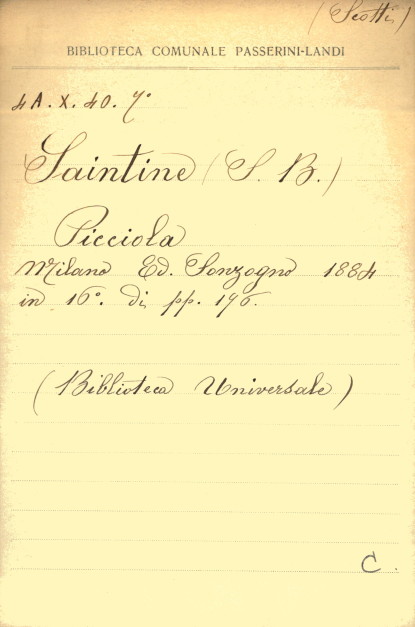 (Scotti)
BIBLIOTECA COMUNALE PASSERINI-LANDI
4A. X. 40. 7°
Saintine (S. B.)
Picciola
Milano Ed. Sonzogno 1884
in 16°. di pp. 196.
(Biblioteca Universale)
C.